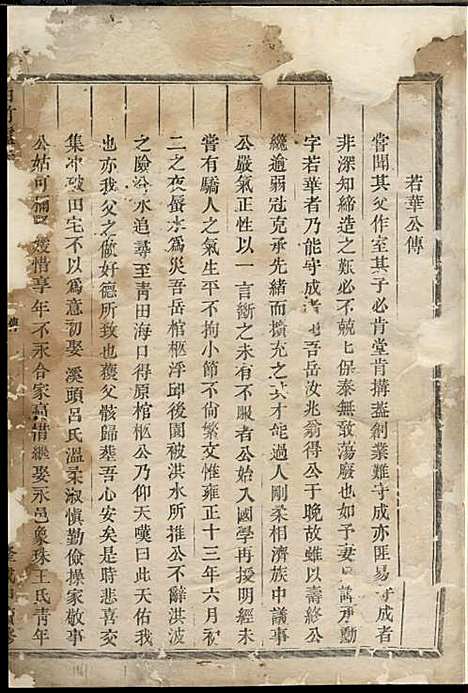 若華公傳
嘗聞其父作室其子必肯堂肯搆蓋創業難守成亦匪易守成者
非深知締造之艱必不兢兢保泰無敢蕩廢也如予妻承勳
字若華者乃能守成者也吾岳汝兆翁得公于晚故雖以壽終公
纔逾弱冠克承先緒而擴充之其才能過人剛柔相濟族中議事
公嚴氣正性以一言斷之未有不服者公始入國學再授明經未
嘗有驕人之氣生平不拘小節不尙繁文惟雍正十三年六月初
二之夜蜃水爲災吾岳棺柩浮邱後園被洪水所推公不以洪波
之險沿水追尋至青田海口得原棺柩公乃仰天嘆曰此天佑我
也亦我父之做好德所致也獲父骸歸葬吾心安矣是時悲喜交
集冲破田宅不以爲意初娶溪頭呂氏溫柔淑慎勤儉操家敬事
公姑可稱賢媛惜享年不永合家哀惜繼娶永邑象珠王氏青年